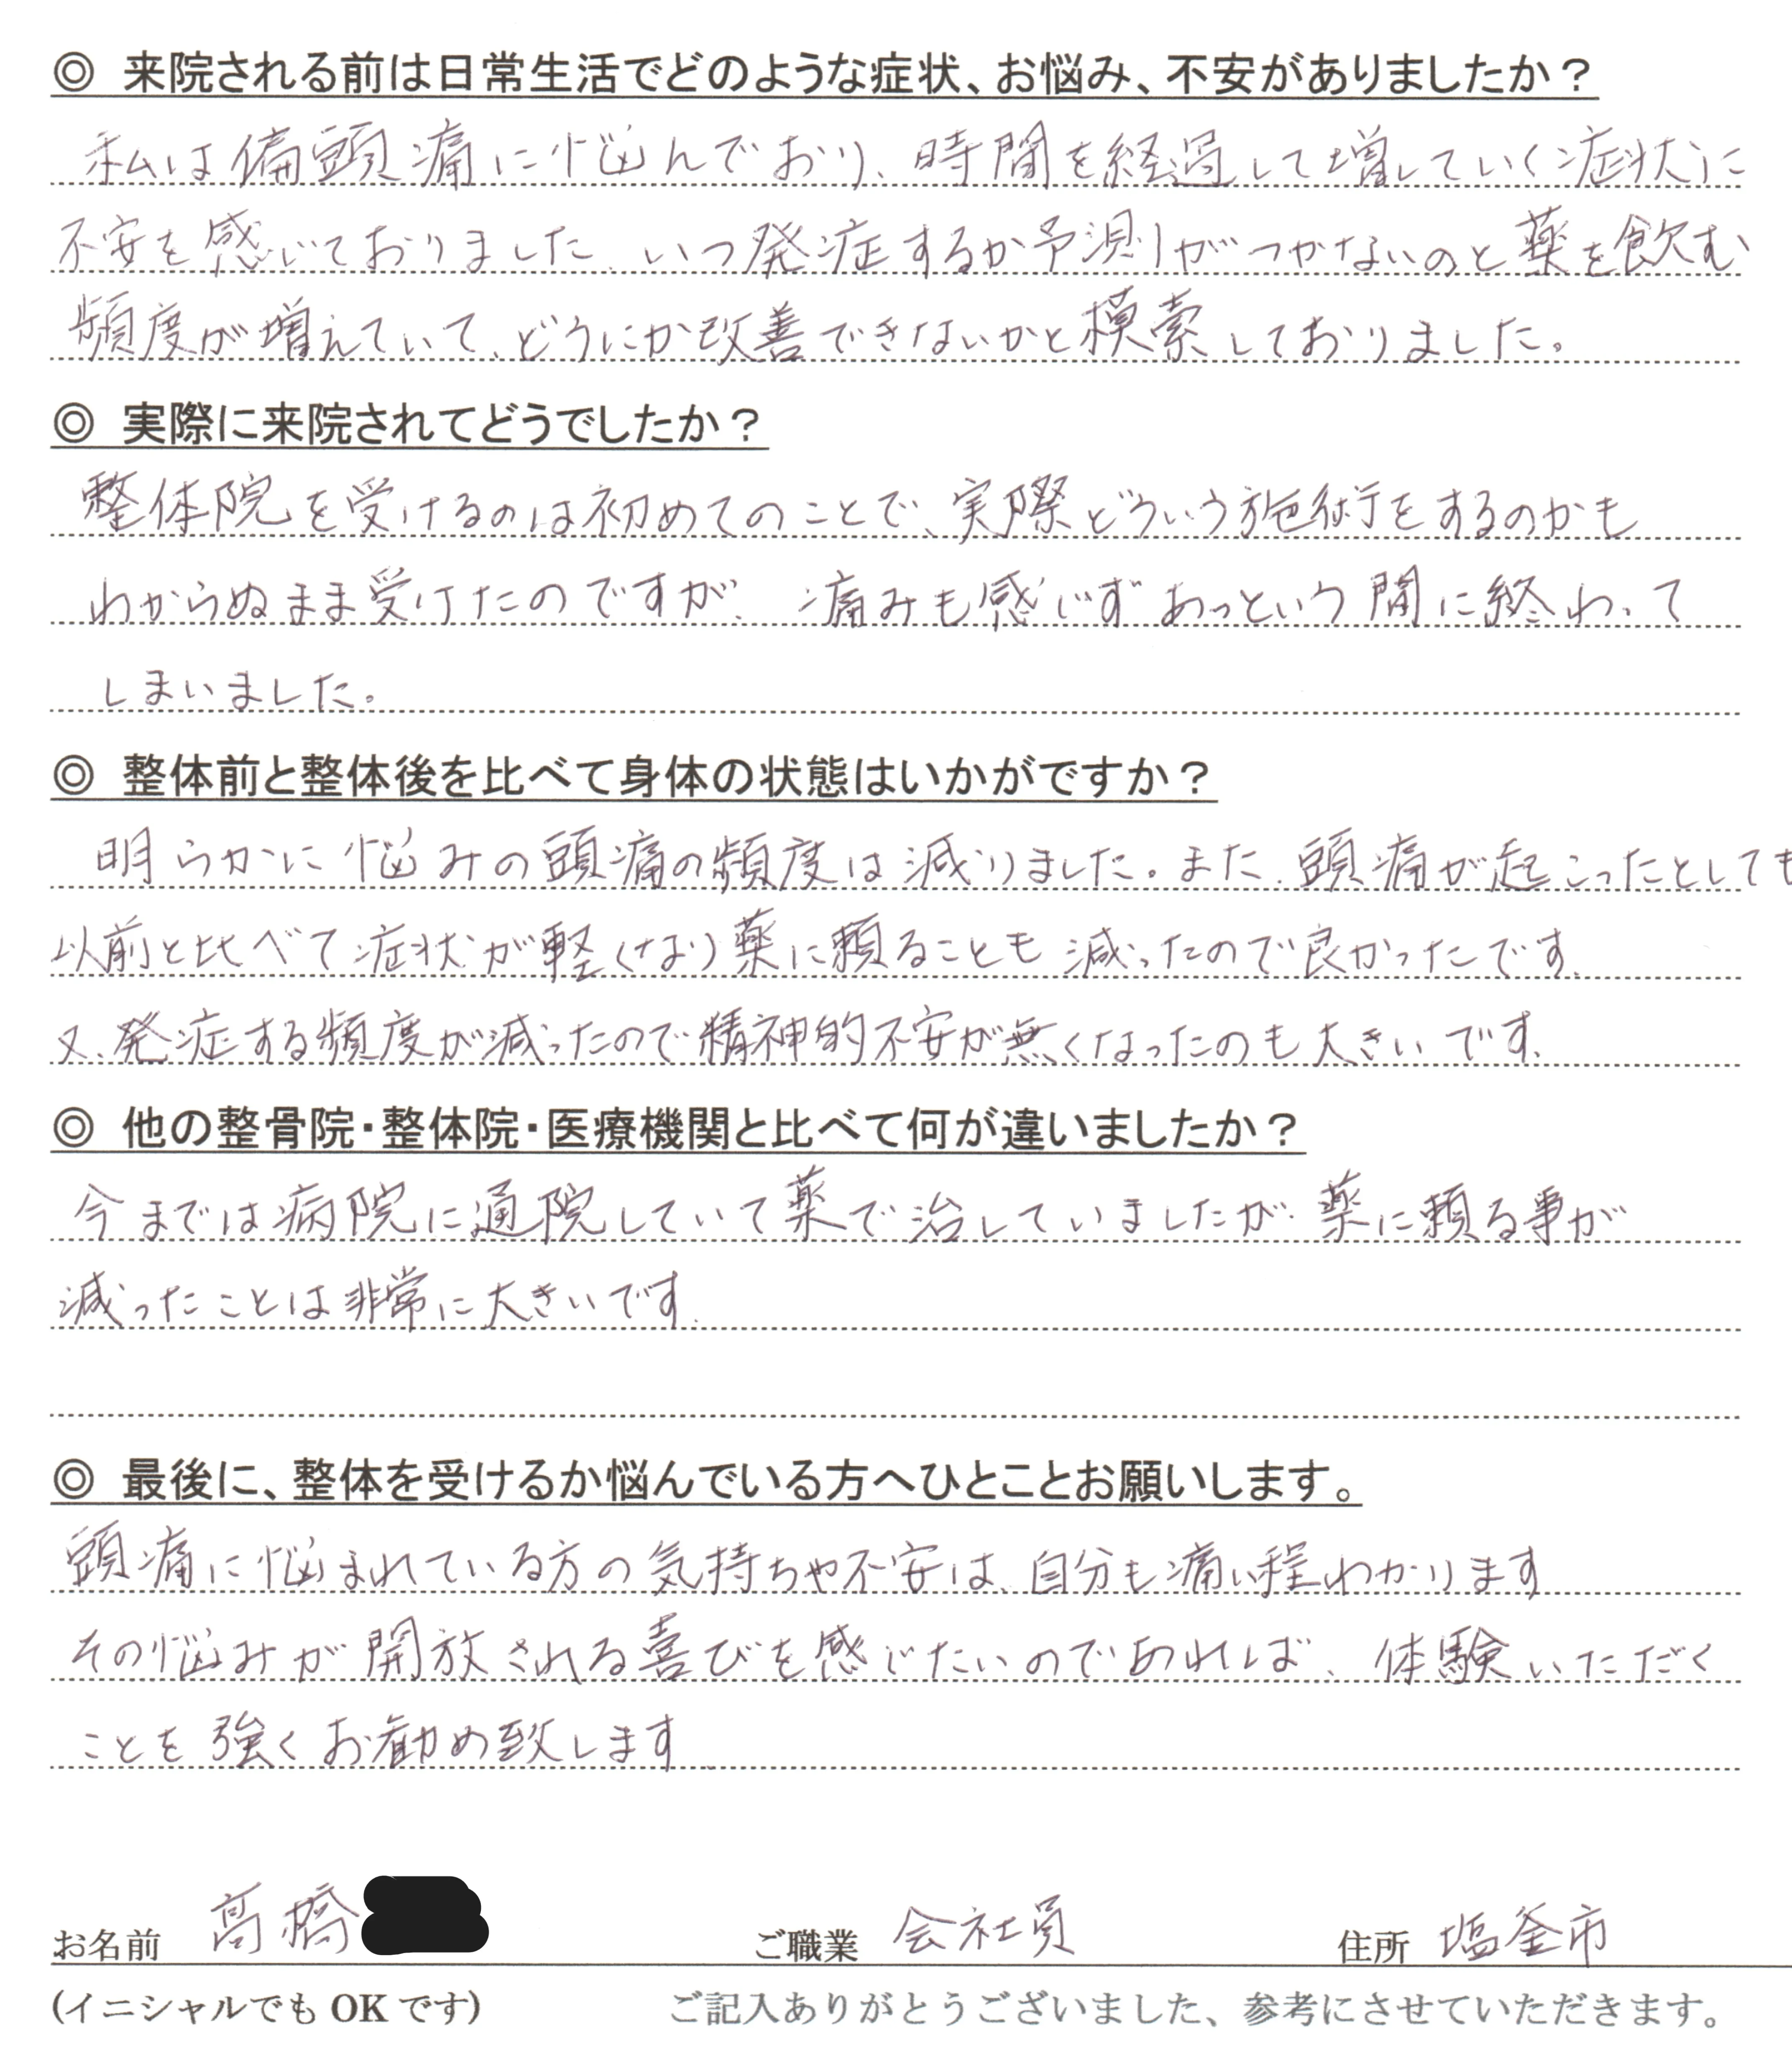 ◎ 来院される前は日常生活でどのような症状、お悩み、不安がありましたか？
私は偏頭痛に悩んでおり、時間を経過して増していく症状に
不安を感じておりました。いつ発症するか予測がつかないのと薬を飲む
頻度が増えていて、どうにか改善できないかと模索しておりました。
◎ 実際に来院されてどうでしたか？
整体院を受けるのは初めてのことで、実際どういう施術をするのかも
わからぬまま受けたのですが、痛みも感じずあっという間に終わって
しまいました。
◎ 整体前と整体後を比べて身体の状態はいかがですか？
明らかに悩みの頭痛の頻度は減りました。また、頭痛が起こったとしても
以前と比べて症状が軽くなり薬に頼ることも減ったので良かったです。
又、発症する頻度が減ったので精神的不安が無くなったのも大きいです。
◎ 他の整骨院・整体院・医療機関と比べて何が違いましたか？
今までは病院に通院していて薬で治していましたが、薬に頼る事が
減ったことは非常に大きいです。
◎ 最後に、整体を受けるか悩んでいる方へひとことお願いします。
頭痛に悩まれている方の気持ちや不安は、自分も痛い程わかります
その悩みが開放される喜びを感じたいのであれば、体験いただく
ことを強くお勧め致します。
お名前 高橋 ご職業 会社員 住所 塩釜市
(イニシャルでも OK です) ご記入ありがとうございました、参考にさせていただきます。